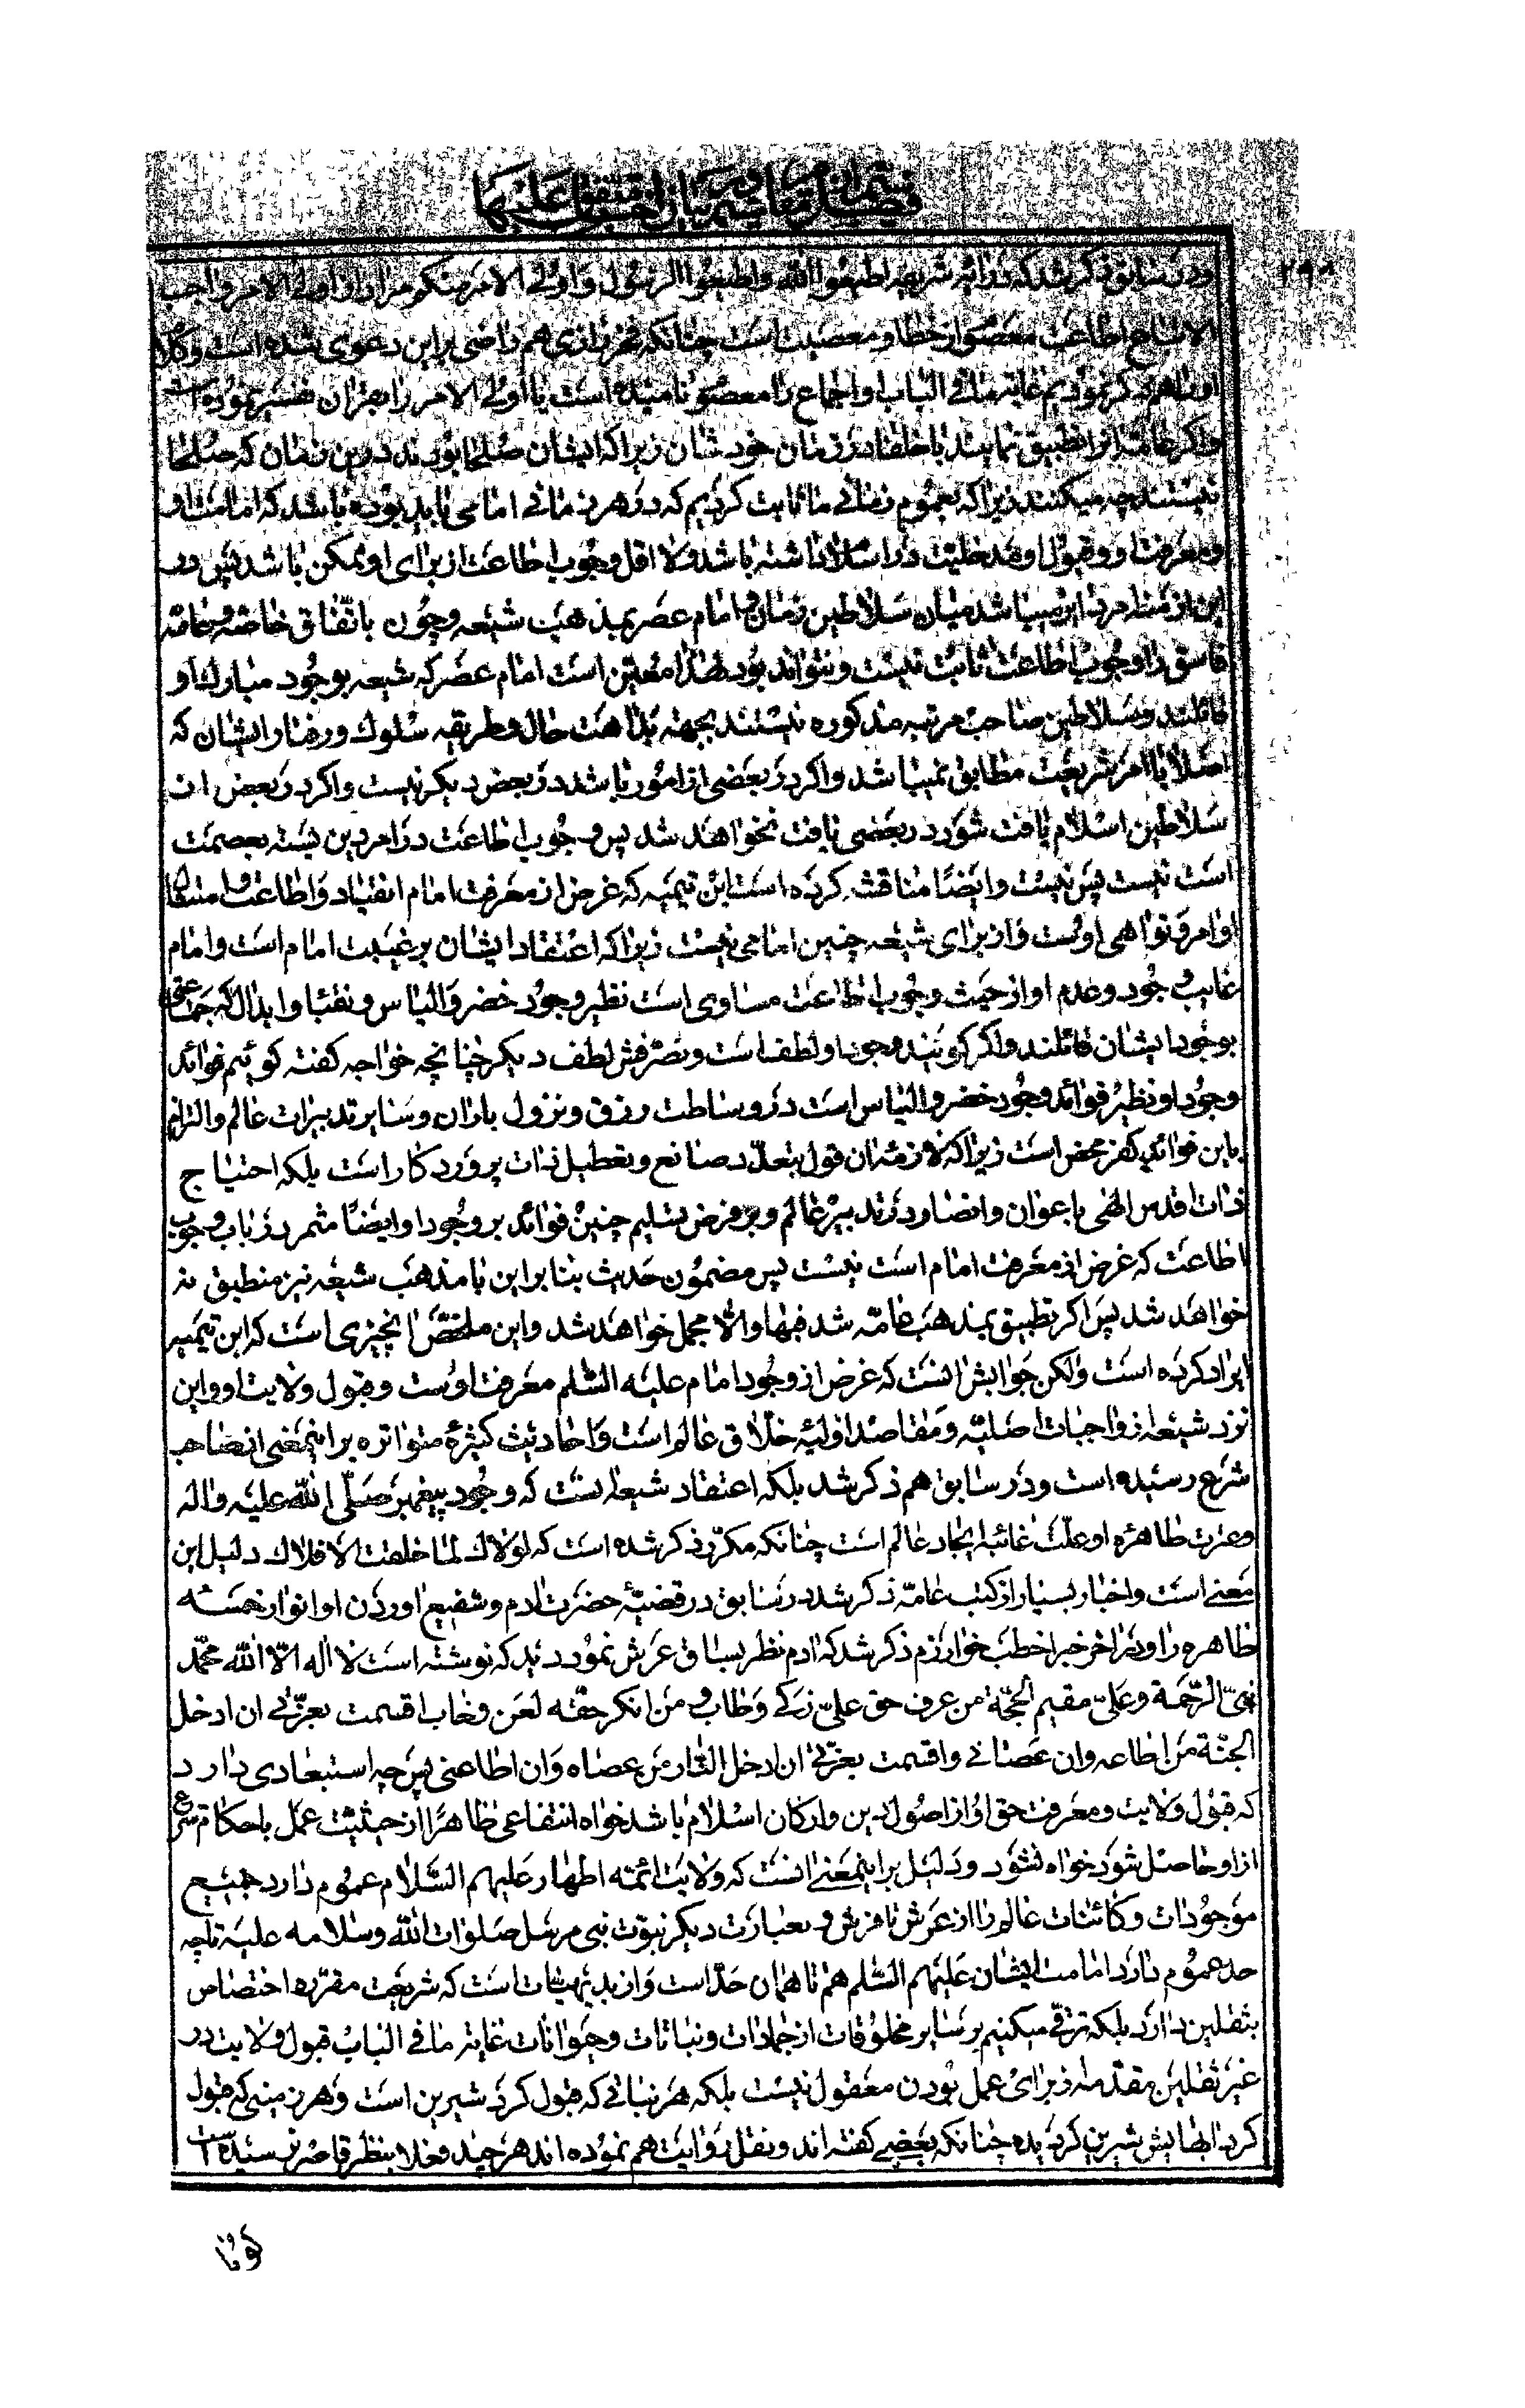 ودر سابق ذکر شد که در آیه شریفه اطیعوا الله واطیعوا الرسول واولی الامر منکم مراد از اولی الامر واجب
الاتباع اطاعت معصوم از خطا و معصیت است چنانکه فخر رازی هم راضی بر این دعوی شده است وکلام
او را هم ذکر نمودیم غایة ما فی الباب او اجماع را معصوم نامیده است یا اولی الامر را بجز آن تفسیر نموده است
واگر عامه انرا تطبیق نمایند با خلفا در زمان خودشان زیرا که ایشان صلحا بودند در این زمان که صلحا
نیستند چه میکنند زیرا که بعموم زمانی ما ثابت کردیم که در هر زمانی امامی باید بوده باشد که امامت او
ومعرفت او وقبول او مدخلیت در اسلام داشته باشد ولا اقل وجوب اطاعت از برای او ممکن باشد پس در
این ازمنه مردد میباشد میان سلاطین زمان وامام عصر بمذهب شیعه وچون باتفاق خاصه وعامه
فاسق را وجوب اطاعت ثابت نیست ونتواند بود لهذا معین است امام عصر که شیعه بوجود مبارک او
قائلند وسلاطین صاحب مرتبه مذکوره نیستند بجهة بداهت حال وطریقه سلوک ورفتار ایشان که
اصلا با امر شریعت مطابق نمیباشد واگر در بعضی از امور باشد در بعض دیگر نیست واگر در بعض از
سلاطین اسلام یافت شود در بعضی یافت نخواهد شد پس وجوب اطاعت در امر دین بسته بعصمت
است نیست پس نیست وایضا مناقشه کرده است ابن تیمیه که غرض از معرفت امام انقیاد واطاعت وامتثال
اوامر ونواهی اوست واز برای شیعه چنین امامی نیست زیرا که اعتقاد ایشان بر غیبت امام است وامام
غایب وجود وعدم او از حیث وجوب اطاعت مساوی است نظیر وجود خضر والیاس ونقبا وابدال که جماعتی
بوجود ایشان قائلند واگر گویند وجود او لطف است وتصرفش لطف دیگر چنانچه خواجه گفته گوئیم فوائد
وجود او نظیر فوائد وجود خضر والیاس است در وساطت رزق ونزول باران وسایر تدبیرات عالم والتزام
باین فوائد کفر محض است زیرا که لازمه ان قول بتعدد صانع وتعطیل ذات پروردکار است بلکه احتیاج
ذات اقدس الهی باعوان وانصار در تدبیر عالم وبر فرض تسلیم چنین فوائد بر وجود او ایضا مثمر در باب وجوب
اطاعت که غرض از معرفت امام است نیست پس مضمون حدیث بنا بر این با مذهب شیعه نیز منطبق نه
خواهد شد پس اگر تطبیق بمذهب عامه شد فبها والا مجمل خواهد شد واین ملخص انچیزی است که ابن تیمیه
ایراد کرده است ولکن جوابش انست که غرض از وجود امام علیه السلم معرفت اوست وقبول ولایت او واین
نزد شیعه از واجبات اصلیه ومقاصد اولیه خلاق عالم است واحادیث کثیره متواتره بر اینمعنی از صاحب
شرع رسیده است ودر سابق هم ذکر شد بلکه اعتقاد شیعه انست که وجود پیغمبر صلی الله علیه واله
وعترت طاهره او علت غائیه ایجاد عالم است چنانکه مکرر ذکر شده است که لولاک لما خلقت الافلاک دلیل این
معنی است واخبار بسیار از کتب عامه ذکر شد در سابق در قضیه حضرت ادم وشفیع اوردن او انوار خمسه
طاهره را ودر اخر خبر اخطب خوارزم ذکر شد که ادم نظر بساق عرش نمود دید که نوشته است لا اله الا الله محمد
نبی الرحمة وعلی مقیم الحجة من عرف حق علی زکی وطاب ومن انکر حقه لعن وخاب اقسمت بعزتی ان ادخل
الجنة من اطاعه وان عصانی واقسمت بعزتی ان ادخل النار من عصاه وان اطاعنی پس چه استبعادی دارد
که قبول ولایت ومعرفت حق او از اصول دین وارکان اسلام باشد خواه انتفاعی ظاهرا از حیثیت عمل باحکام شرع
از او حاصل شود خواه نشود ودلیل بر اینمعنی انست که ولایت ائمه اطهار علیهم السلام عموم دارد جمیع
موجودات وکائنات عالم را از عرش تا فرش وبعبارت دیگر نبوت نبی مرسل صلوات الله وسلامه علیه تا چه
حد عموم دارد امامت ایشان علیهم السلم هم تا همان حد است واز بدیهیات است که شریعت مقرره اختصاص
بثقلین دارد بلکه ترقی میکنیم بر سایر مخلوقات از جمادات ونباتات وحیوانات غایة ما فی الباب قبول ولایت در
غیر ثقلین مقدمه از برای عمل بودن معقول نیست بلکه هر نباتی که قبول کرد شیرین است وهر زمینی که قبول
کرد ابهایش شیرین گردیده چنانکه بعضی گفته اند ونقل روایت هم نموده اند هر چند فعلا بنظر قاصر نرسیده است